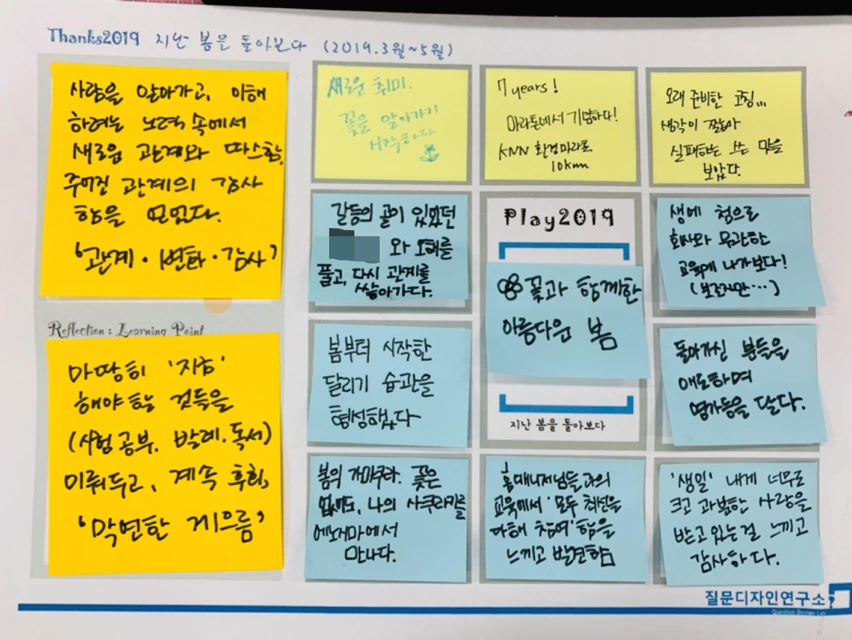 Thanks2019 지난 봄을 돌아보다 (2019.3월~5월)
사람을 알아가고, 이해
하려는 노력 속에서
새로운 관계와 따스함,
주어진 관계의 감사
함을 얻었다.
'관계·변화·감사'
새로운 취미.
꽃을 알아가기
시작하다
7 years!
마라톤에서 기념하다!
KNN 환경마라톤
10km
오래 준비한 코칭...
생각이 짧아
실패하는 쓴 맛을
보았다.
갈등의 골이 있었던
와 오해를
풀고, 다시 관계를
쌓아가다.
Play2019
꽃과 함께한
아름다운 봄
지난 봄을 돌아보다
생에 첨으로
회사와 무관한
교육에 나가보다!
(보조지만...)
Reflection : Learning Point
마땅히 '지금'
해야 할 것들을
(시험공부, 발레, 독서)
미뤄두고, 계속 후회,
'막연한 게으름'
봄부터 시작한
달리기 습관을
형성했다
돌아가신 분들을
애도하며
연등을 달다.
봄의 가마쿠라. 꽃은
없어도, 나의 사쿠라기를
에노시마에서
만나다.
홈매니저님들과의
교육에서 '모두 최선을
다해 참여'함을
느끼고 발견함
'생일' 내게 너무도
크고 과분한 사랑을
받고 있는 걸 느끼고
감사하다.
질문디자인연구소
Question Design Lab